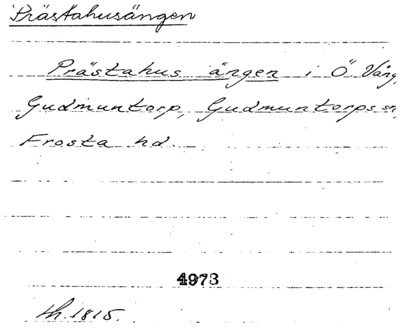 Prästahusängen
Prästahus ängen i Ö. Vång,
Gudmuntorp, Gudmuntorps sn,
Frosta hd
4973
th. 1815.